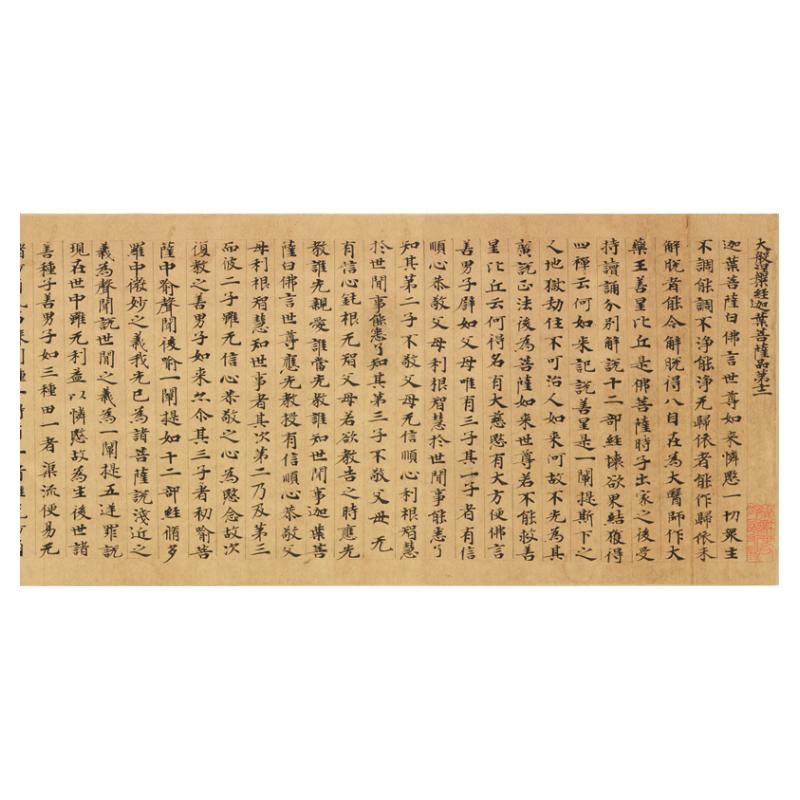 大般涅槃經迦葉菩薩品第十二
迦葉菩薩白佛言世尊如来憐愍一切眾生
不調能調不淨能淨无歸依者能作歸依未
解脱者能令解脱得八自在為大醫師作大
藥王善星比丘是佛菩薩時子出家之後受
持讀誦分別解說十二部經壞欲界結獲得
四禪云何如来記說善星是一闡提斯下之
人地獄劫住不可治人如来何故不先為其
廣說正法後為菩薩如来世尊若不能救善
星比丘云何得名有大慈愍有大方便佛言
善男子譬如父母唯有三子其一子者有信
順心恭敬父母利根智慧於世間事能悉了
知其第二子不敬父母无信順心利根智慧
於世間事能悉了知其第三子不敬父母无
有信心鈍根无智父母若欲教告之時應先
教誰先親愛誰當先教誰知世間事迦葉菩
薩白佛言世尊應先教授有信順心恭敬父
母利根智慧知世事者其次第二乃及第三
而彼二子雖无信心恭敬之心為愍念故次
復教之善男子如来亦尒其三子者初喻菩
薩中喻聲聞後喻一闡提如十二部經脩多
羅中微妙之義我先已為諸菩薩說淺近之
義為聲聞說世間之義為一闡提五逆罪說
現在世中雖无利益以憐愍故為生後世諸
善種子善男子如三種田一者渠流便易无